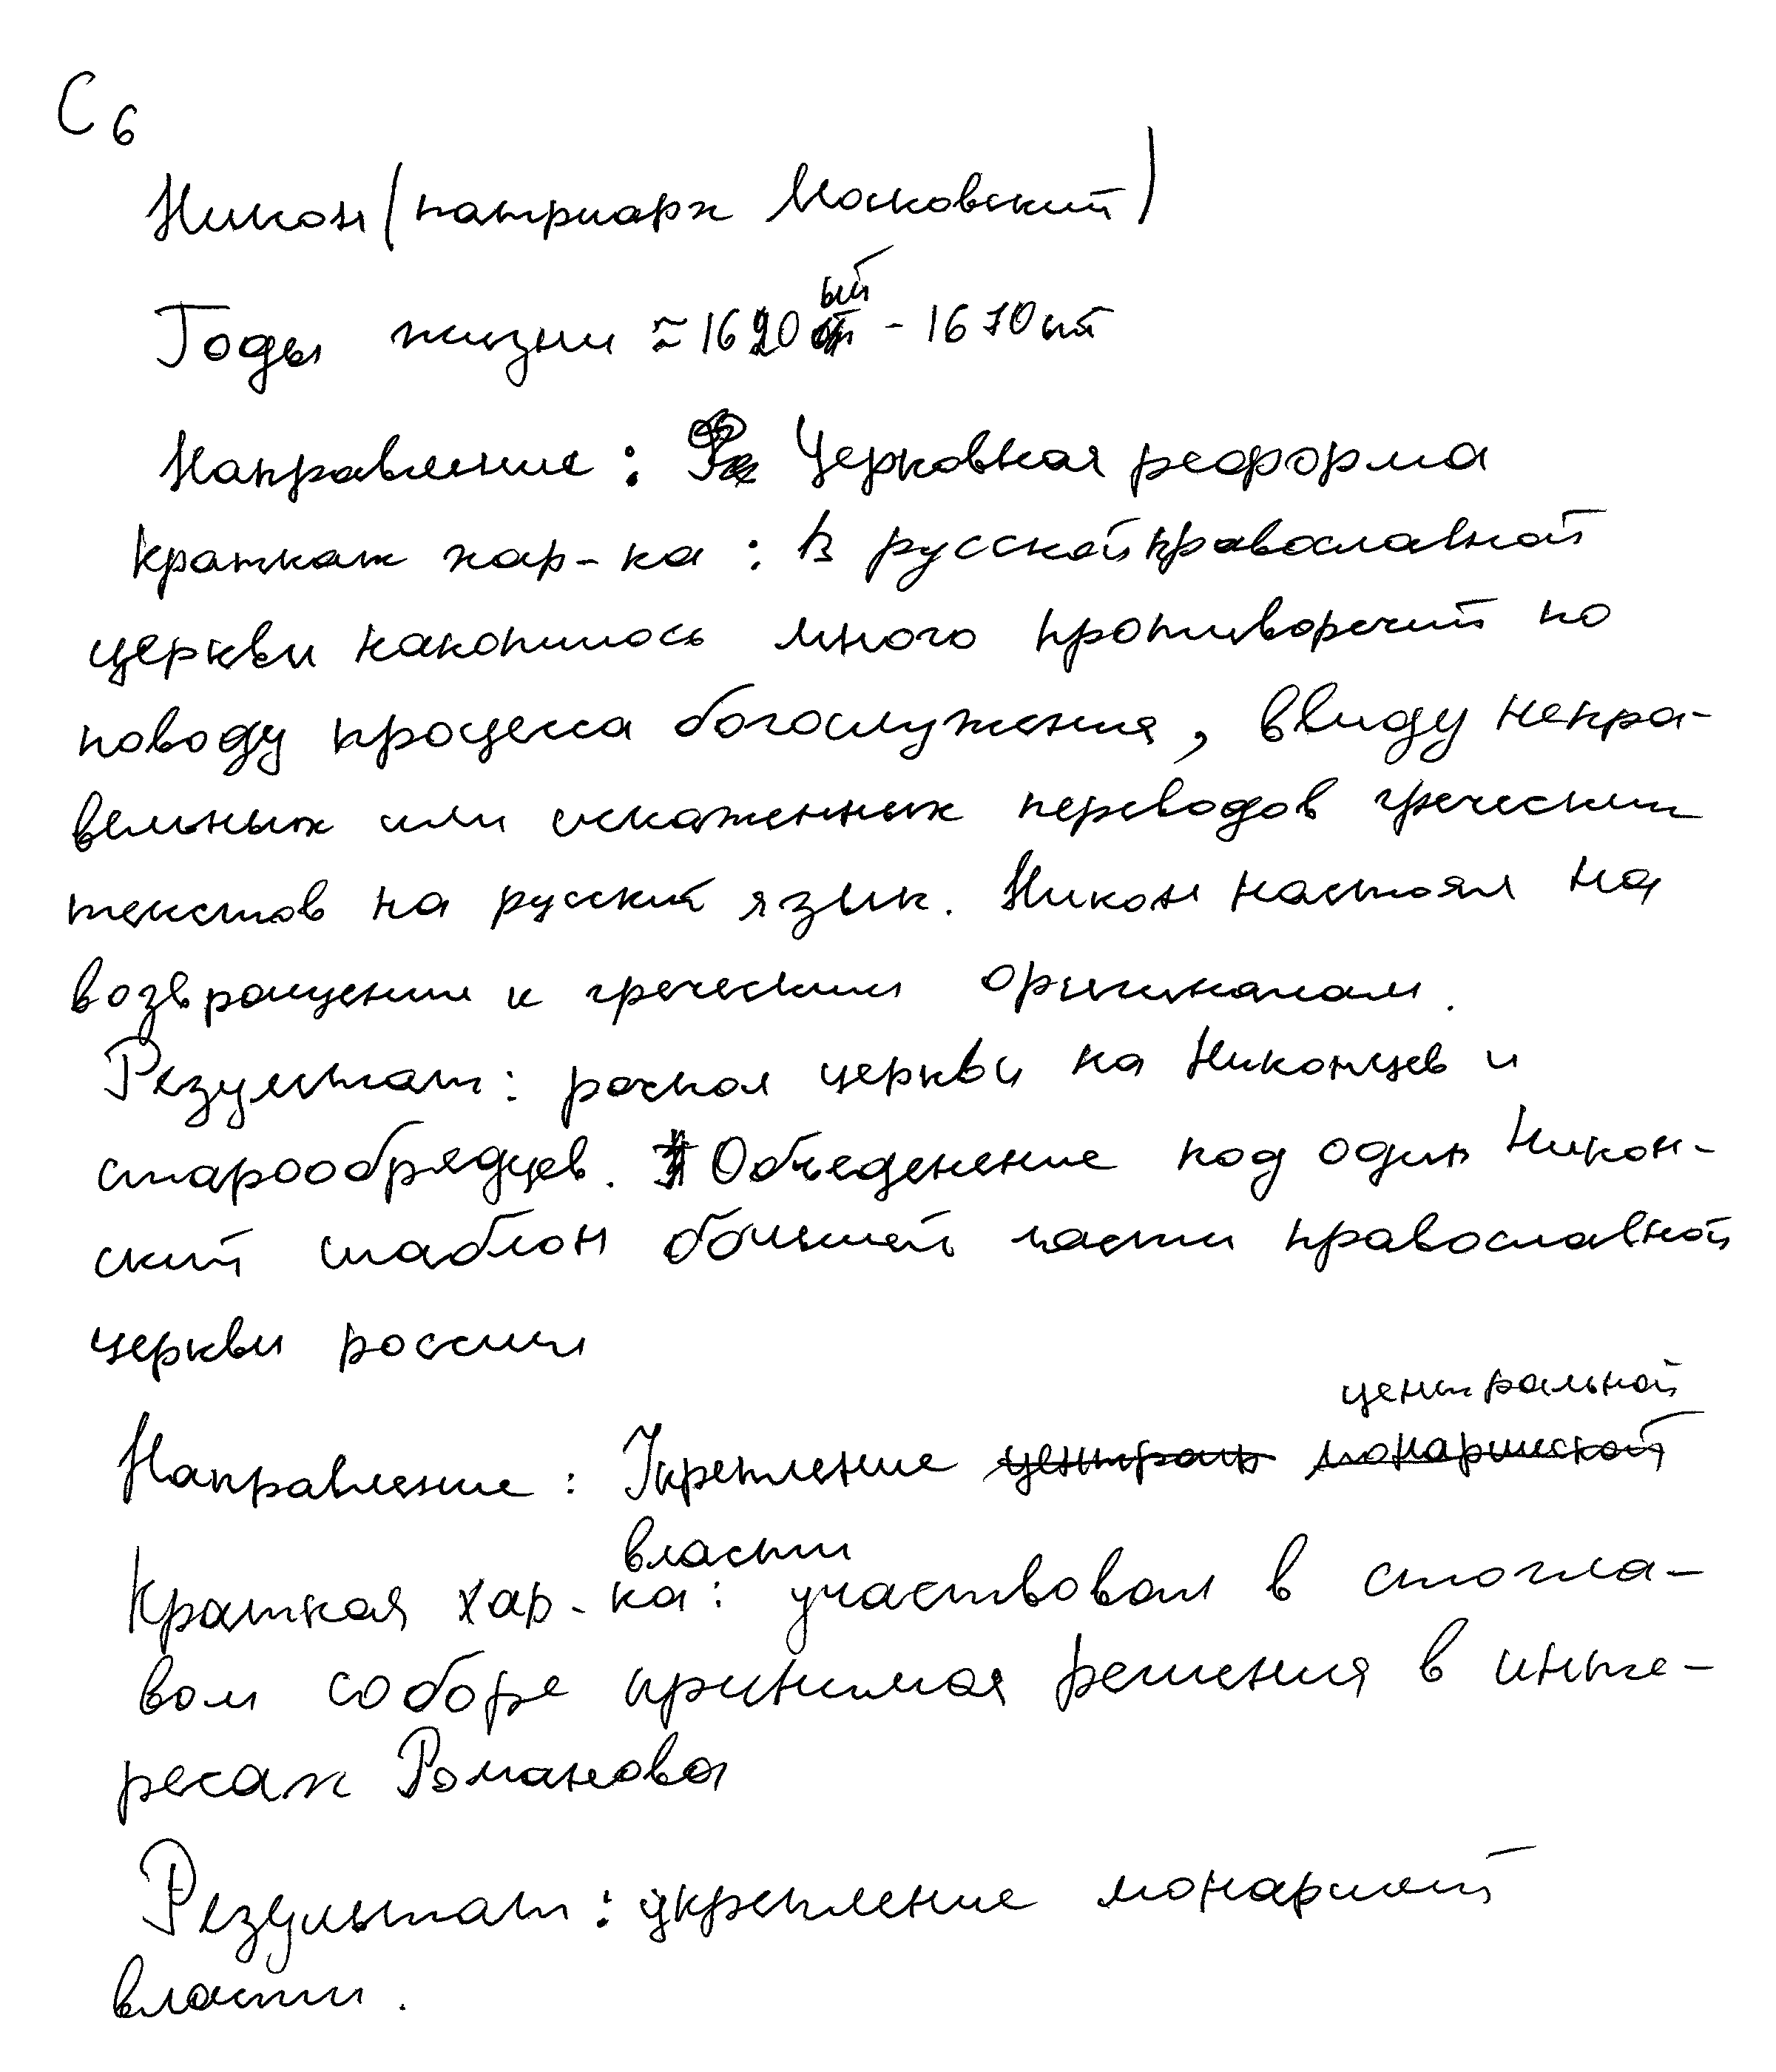 С6
Никон (патриарх Московский)
Годы жизни ≈ 1620ый - 1670ый
Направление: Церковная реформа
Краткая хар-ка: В русской православной
церкви накопилось много противоречий по
поводу процесса богослужения, ввиду непра-
вельных или искаженных переводов греческих
текстов на русский язык. Никон настоял на
возвращении к греческим оригиналам.
Результат: раскол церкви на Никонцев и
старообрядцев. Объеденение под один Никон-
ский шаблон большей части православной
церкви россии
Направление: Укрепление центральной
власти
Краткая хар-ка: участвовал в стогла-
вом соборе принимая решения в инте-
ресах Романова
Результат: укрепление монаршей
власти.